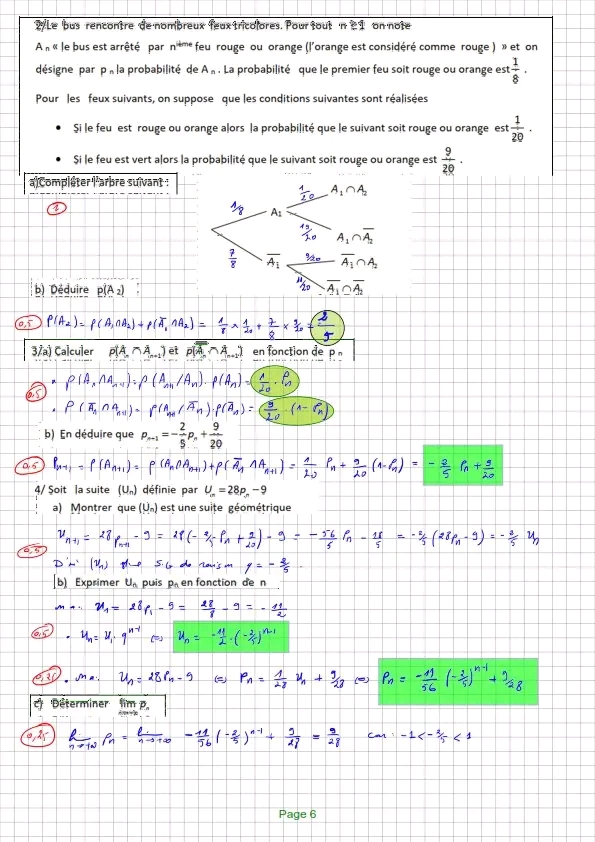 2/Le bus rencontre de nombreux feux tricolores. Pour tout n ≥ 1 on note
A n « le bus est arrêté par nième feu rouge ou orange (l'orange est considéré comme rouge ) » et on
désigne par p n la probabilité de A n . La probabilité que le premier feu soit rouge ou orange est 1/8 .
Pour les feux suivants, on suppose que les conditions suivantes sont réalisées
• Si le feu est rouge ou orange alors la probabilité que le suivant soit rouge ou orange est 1/20 .
• Si le feu est vert alors la probabilité que le suivant soit rouge ou orange est 9/20 .
a)Compléter l'arbre suivant :
1
1/8 A₁ 1/20 A₁ ∩ A₂
19/20 A₁ ∩ A̅₂
7/8 A̅₁ 9/20 A̅₁ ∩ A₂
11/20 A̅₁ ∩ A̅₂
b) Déduire p(A ₂)
0,5 P(A₂) = P(A₁∩A₂) + P(A̅₁∩A₂) = 1/8 × 1/20 + 7/8 × 9/20 = 2/5
3/a) Calculer p(Aₙ ∩ Aₙ₊₁) et p(A̅ₙ ∩ Aₙ₊₁) en fonction de p n
• P(Aₙ ∩ Aₙ₊₁) = P(Aₙ₊₁/Aₙ) . P(Aₙ) = 1/20 . Pₙ
0,5
• P(A̅ₙ ∩ Aₙ₊₁) = P(Aₙ₊₁/A̅ₙ) . P(A̅ₙ) = 9/20 . (1 - Pₙ)
b) En déduire que pₙ₊₁ = - 2/5 pₙ + 9/20
0,5 Pₙ₊₁ = P(Aₙ₊₁) = P(Aₙ∩Aₙ₊₁) + P(A̅ₙ∩Aₙ₊₁) = 1/20 Pₙ + 9/20 (1-Pₙ) = -2/5 Pₙ + 9/20
4/ Soit la suite (Uₙ) définie par Uₙ = 28pₙ - 9
a) Montrer que (Uₙ) est une suite géométrique
Uₙ₊₁ = 28 Pₙ₊₁ - 9 = 28(-2/5 Pₙ + 9/20) - 9 = -56/5 Pₙ - 18/5 = -2/5 (28Pₙ - 9) = -2/5 Uₙ
0,5
D'où (Uₙ) S.G de raison q = -2/5
b) Exprimer Uₙ puis pₙ en fonction de n
U₁ = 28P₁ - 9 = 28/8 - 9 = -11/2
0,5 • Uₙ = U₁ . qⁿ⁻¹ ⇔ Uₙ = -11/2 . (-2/5)ⁿ⁻¹
0,25 • Uₙ = 28Pₙ - 9 ⇔ Pₙ = 1/28 Uₙ + 9/28 ⇔ Pₙ = -11/56 (-2/5)ⁿ⁻¹ + 9/28
c) Déterminer lim pₙ
0,25 lim n→+∞ Pₙ = lim n→+∞ -11/56 (-2/5)ⁿ⁻¹ + 9/28 = 9/28 car : -1 < -2/5 < 1
Page 6